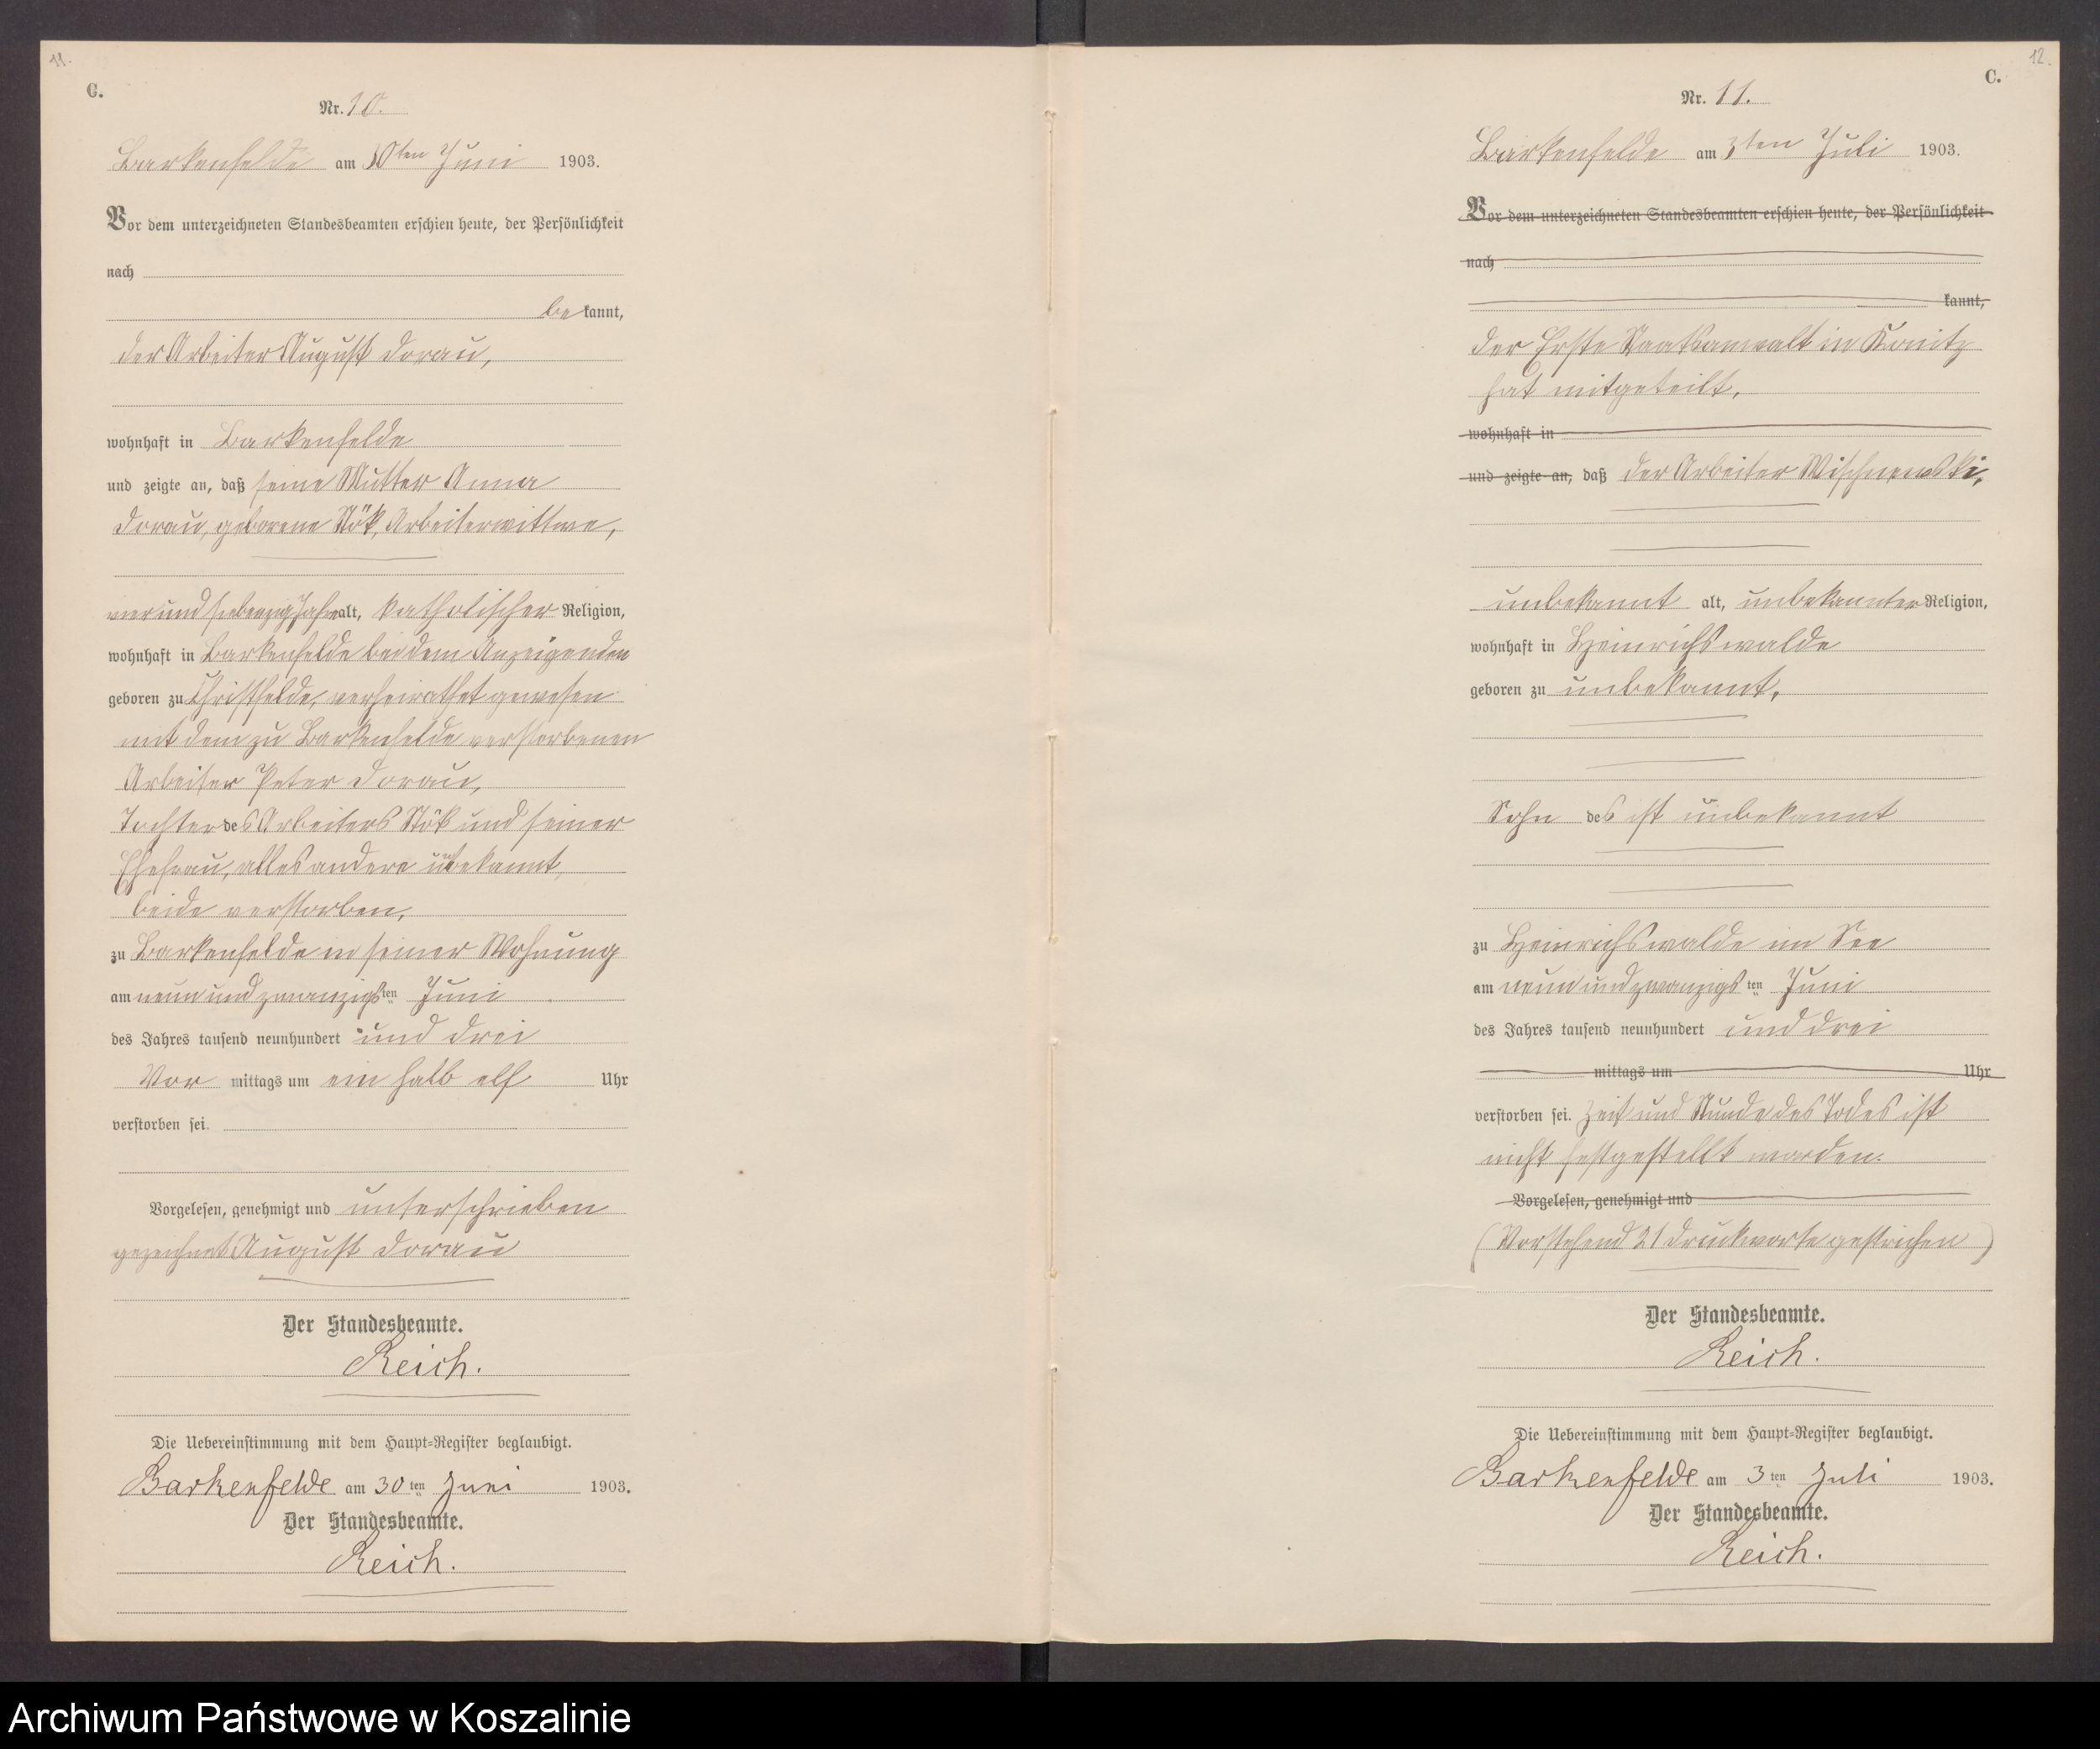 11.
C.
Nr. 10.
Barkenfelde am 30ten Juni 1903.
Vor dem unterzeichneten Standesbeamten erschien heute, der Persönlichkeit
nach
be kannt,
der Arbeiter August Dorau,
wohnhaft in Barkenfelde
und zeigte an, daß seine Mutter Anna
Dorau, geborene Stök, Arbeiterwittwe,
vier und siebenzig Jahre alt, katholischer Religion,
wohnhaft in Barkenfelde bei dem Anzeigenden
geboren zu Christfelde, verheirathet gewesen
mit dem zu Barkenfelde verstorbenen
Arbeiter Peter Dorau,
Tochter des Arbeiters Stök und seiner
Ehefrau, alles andere unbekannt,
beide verstorben,
zu Barkenfelde in seiner Wohnung
am neun und zwanzigsten Juni
des Jahres tausend neunhundert und drei
Vor mittags um ein halb elf Uhr
verstorben sei.
Vorgelesen, genehmigt und unterschrieben
gezeichnet August Dorau
Der Standesbeamte.
Reich.
Die Uebereinstimmung mit dem Haupt-Register beglaubigt.
Barkenfelde am 30ten Juni 1903.
Der Standesbeamte.
Reich.
12.
C.
Nr. 11.
Barkenfelde am 3ten Juli 1903.
Vor dem unterzeichneten Standesbeamten erschien heute, der Persönlichkeit
nach
kannt,
Der Erste Staatsanwalt in Konitz
hat mitgeteilt,
wohnhaft in
und zeigte an, daß der Arbeiter Wischnewski,
unbekannt alt, unbekannter Religion,
wohnhaft in Heinrichswalde
geboren zu unbekannt,
Sohn des ist unbekannt
zu Heinrichswalde im See
am neun und zwanzigsten Juni
des Jahres tausend neunhundert und drei
mittags um Uhr
verstorben sei. Zeit und Stunde des Todes ist
nicht festgestellt worden.
Vorgelesen, genehmigt und
(Vorstehend 21 Druckworte gestrichen)
Der Standesbeamte.
Reich.
Die Uebereinstimmung mit dem Haupt-Register beglaubigt.
Barkenfelde am 3ten Juli 1903.
Der Standesbeamte.
Reich.
Archiwum Państwowe w Koszalinie